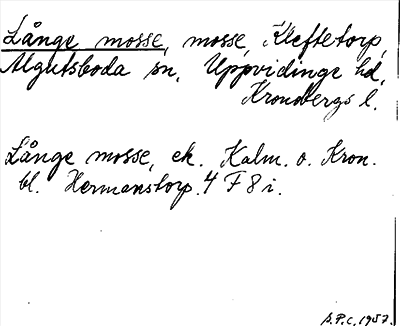 Långe mosse, mosse, Kleftetorp,
Algutsboda sn, Uppvidinge hd,
Kronobergs l.
Långe mosse, ek. Kalm. o. Kron.
bl. Hermanstorp. 4 F 8 i.
B.P.C. 1957.